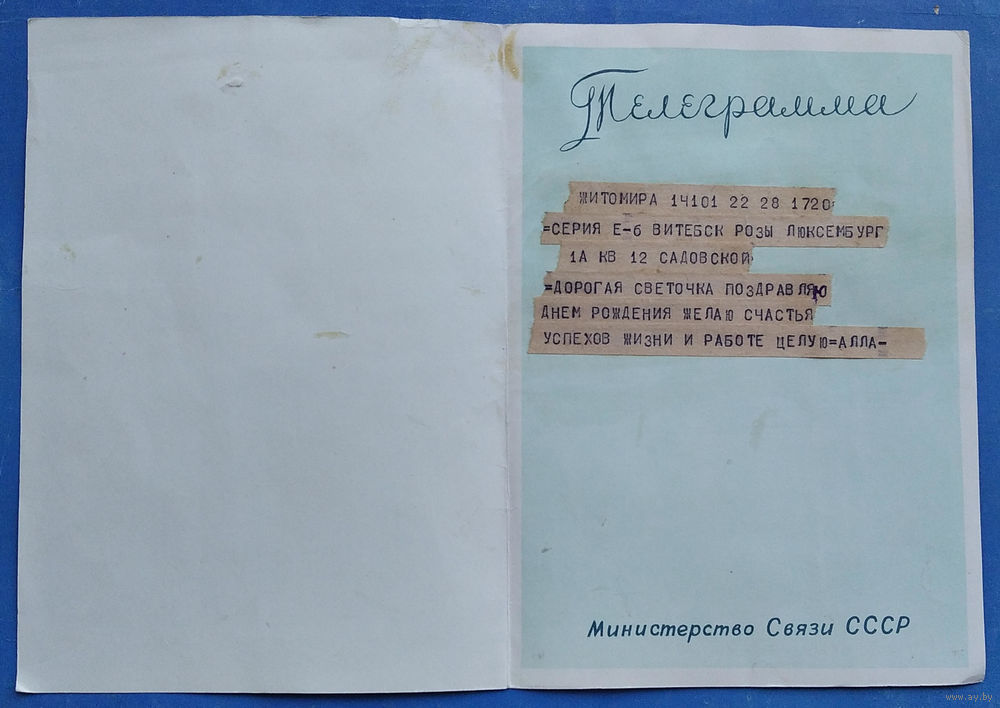 Телеграмма
ЖИТОМИРА 14101 22 28 1720
=СЕРИЯ Е-6 ВИТЕБСК РОЗЫ ЛЮКСЕМБУРГ
1А КВ 12 САДОВСКОЙ
=ДОРОГАЯ СВЕТОЧКА ПОЗДРАВЛЯЮ
ДНЕМ РОЖДЕНИЯ ЖЕЛАЮ СЧАСТЬЯ
УСПЕХОВ ЖИЗНИ И РАБОТЕ ЦЕЛУЮ=АЛЛА-
Министерство Связи СССР
www.ay.by